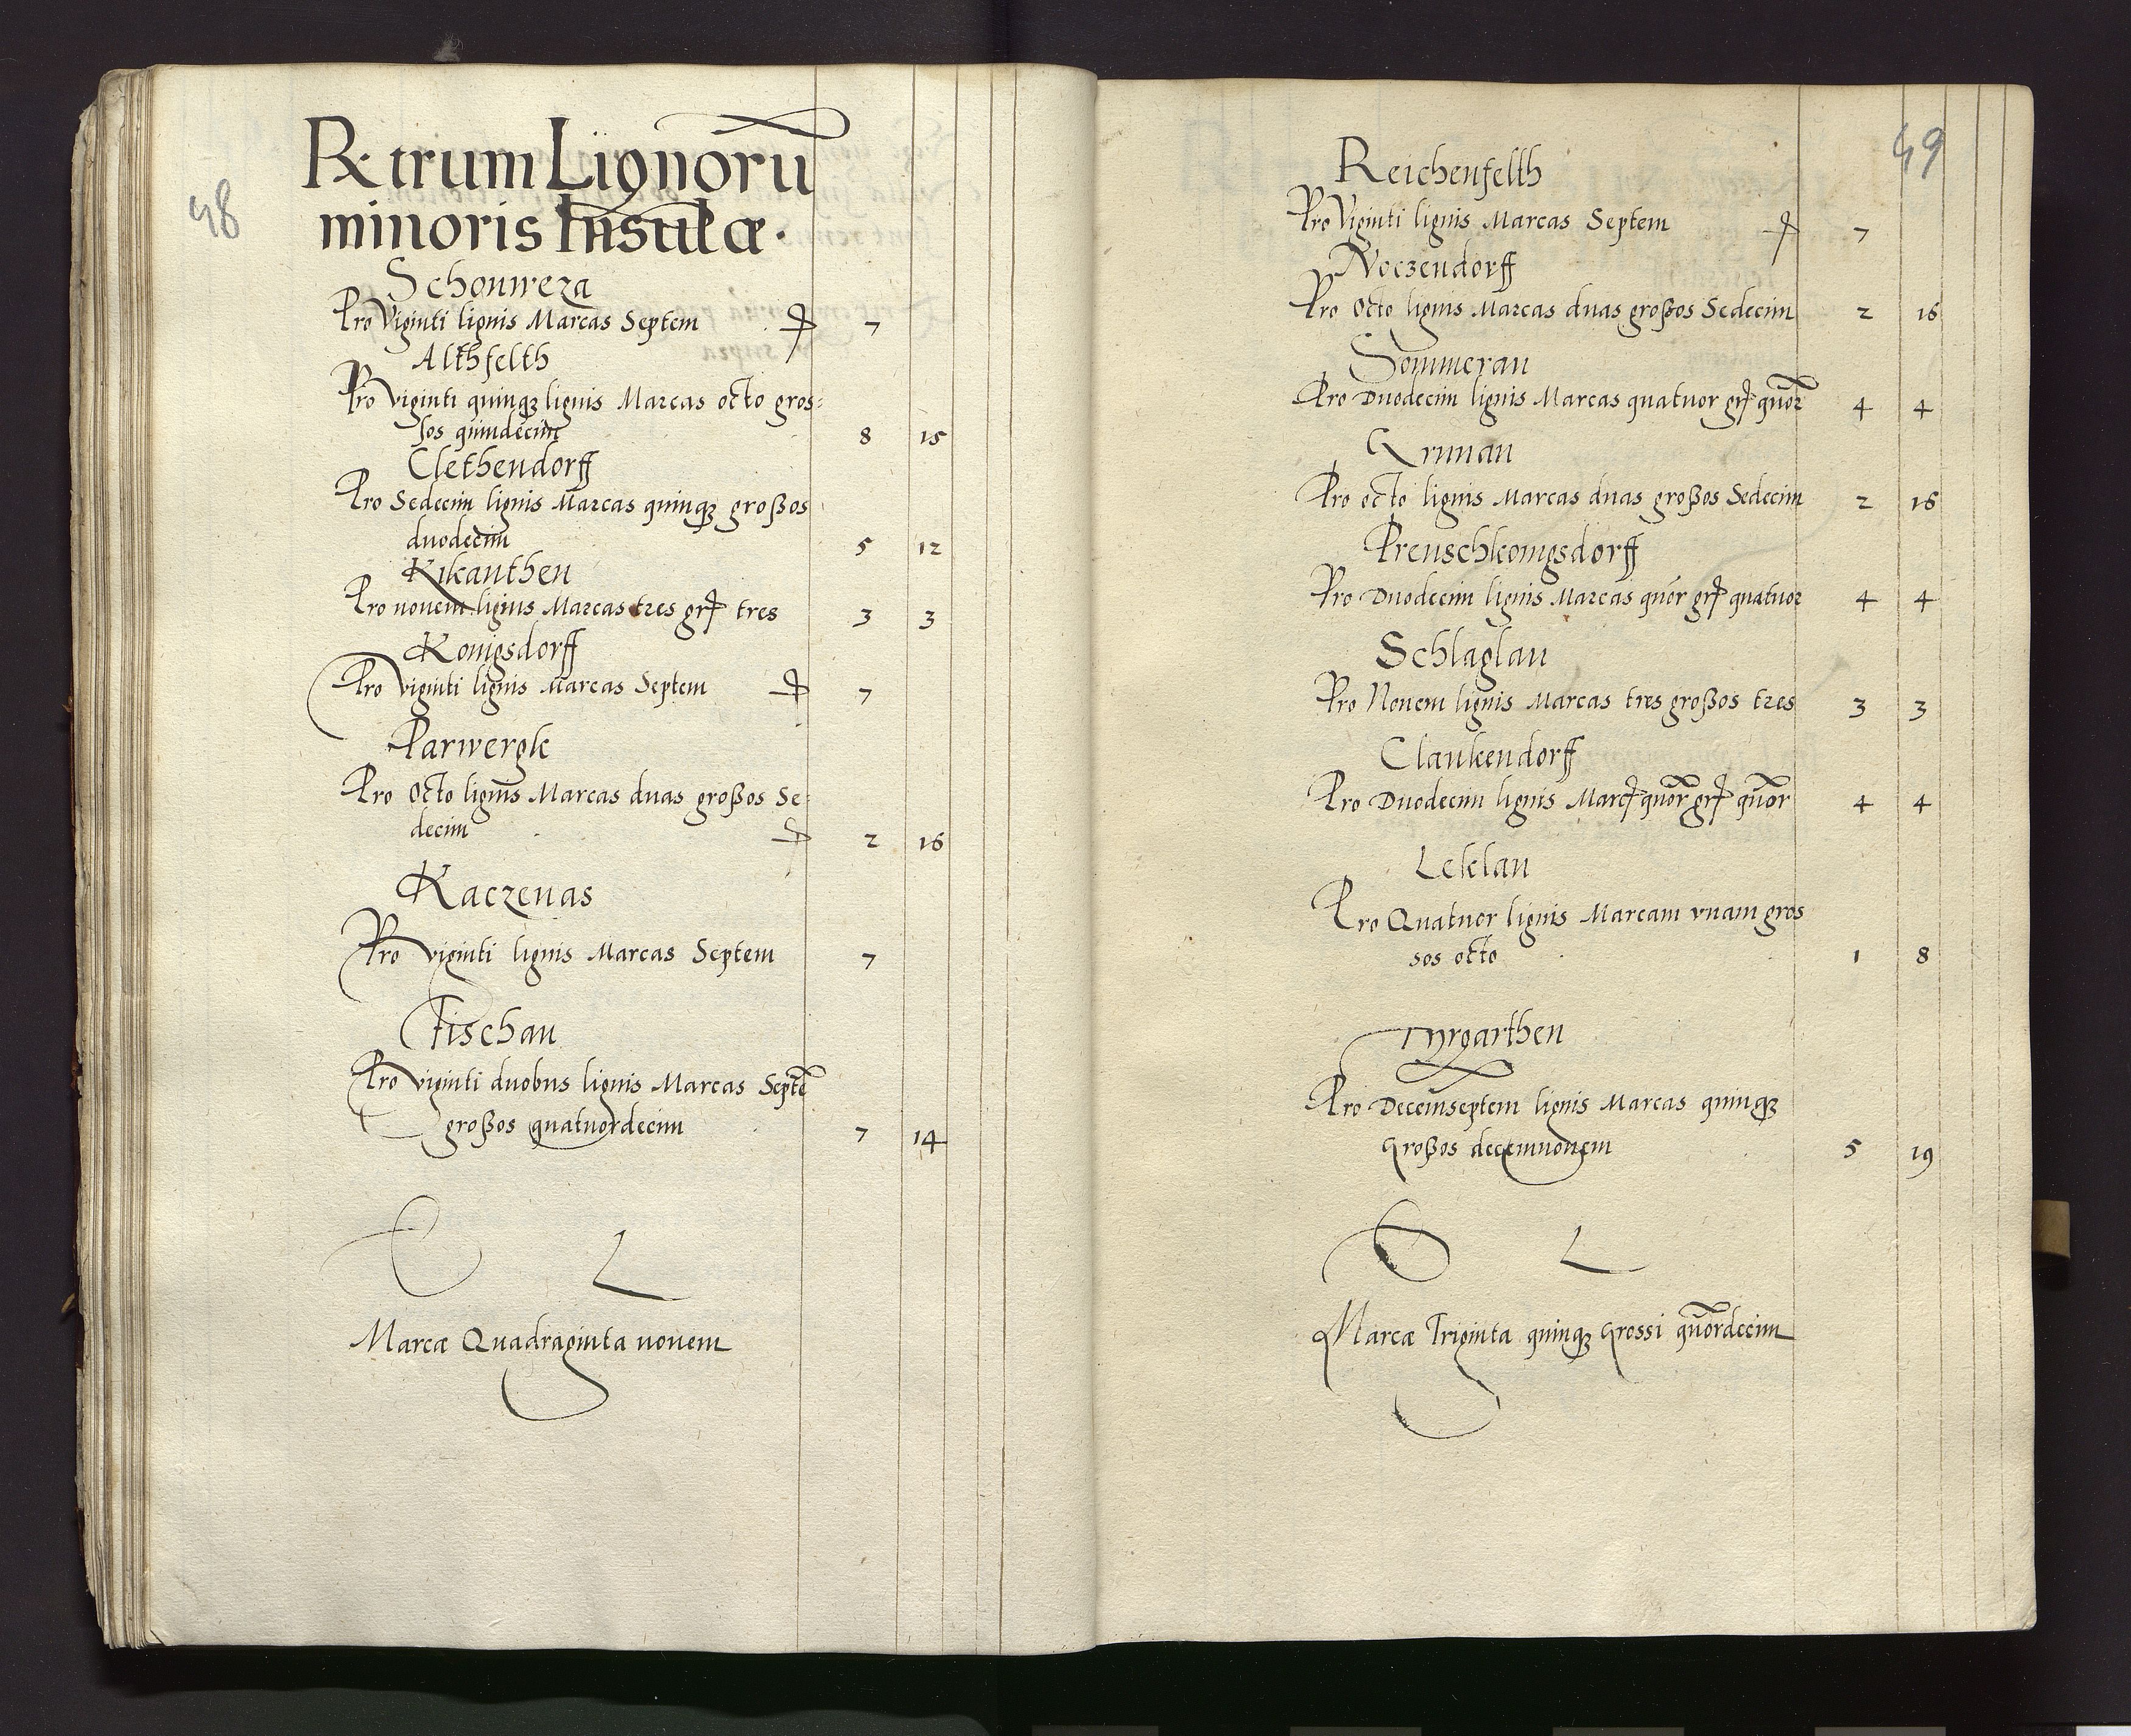 48
Retrum Lignorū
minoris Insulæ.
Schonweza
Pro Viginti lignis Marcas Septem 7
Althfelth
Pro viginti quinqz lignis Marcas octo gros:
sos quindecim 8 15
Clethendorff
Pro Sedecim lignis Marcas quinqz großos
duodecim 5 12
Kikanthen
Pro novem lignis Marcas tres gr tres 3 3
Konigsdorff
Pro viginti lignis Marcas Septem 7
Parwergk
Pro Octo lignis Marcas duas großos Se:
decim 2 16
Kaczenas
Pro viginti lignis Marcas Septem 7
Fischau
Pro viginti duobus lignis Marcas Septē
großos quatuordecim 7 14
Marcæ Quadraginta novem
49
Reichenfelth
Pro Viginti lignis Marcas Septem 7
Noczendorff
Pro Octo lignis Marcas duas großos Sedecim 2 16
Sommerau
Pro Duodecim lignis Marcas quatuor gr quōr 4 4
Grunau
Pro octo lignis Marcas duas großos Sedecim 2 16
Preuschkonigsdorff
Pro Duodecim lignis Marcas quōr gr quatuor 4 4
Schlaglau
Pro Novem lignis Marcas tres großos tres 3 3
Clankendorff
Pro Duodecim lignis Marc quōr gr quōr 4 4
Leklau
Pro Quatuor lignis Marcam vnam gros
sos octo 1 8
Tyrgarthen
Pro Decemseptem lignis Marcas quinqz
Großos decemnovem 5 19
Marcæ Triginta quinqz Grossi quōrdecim